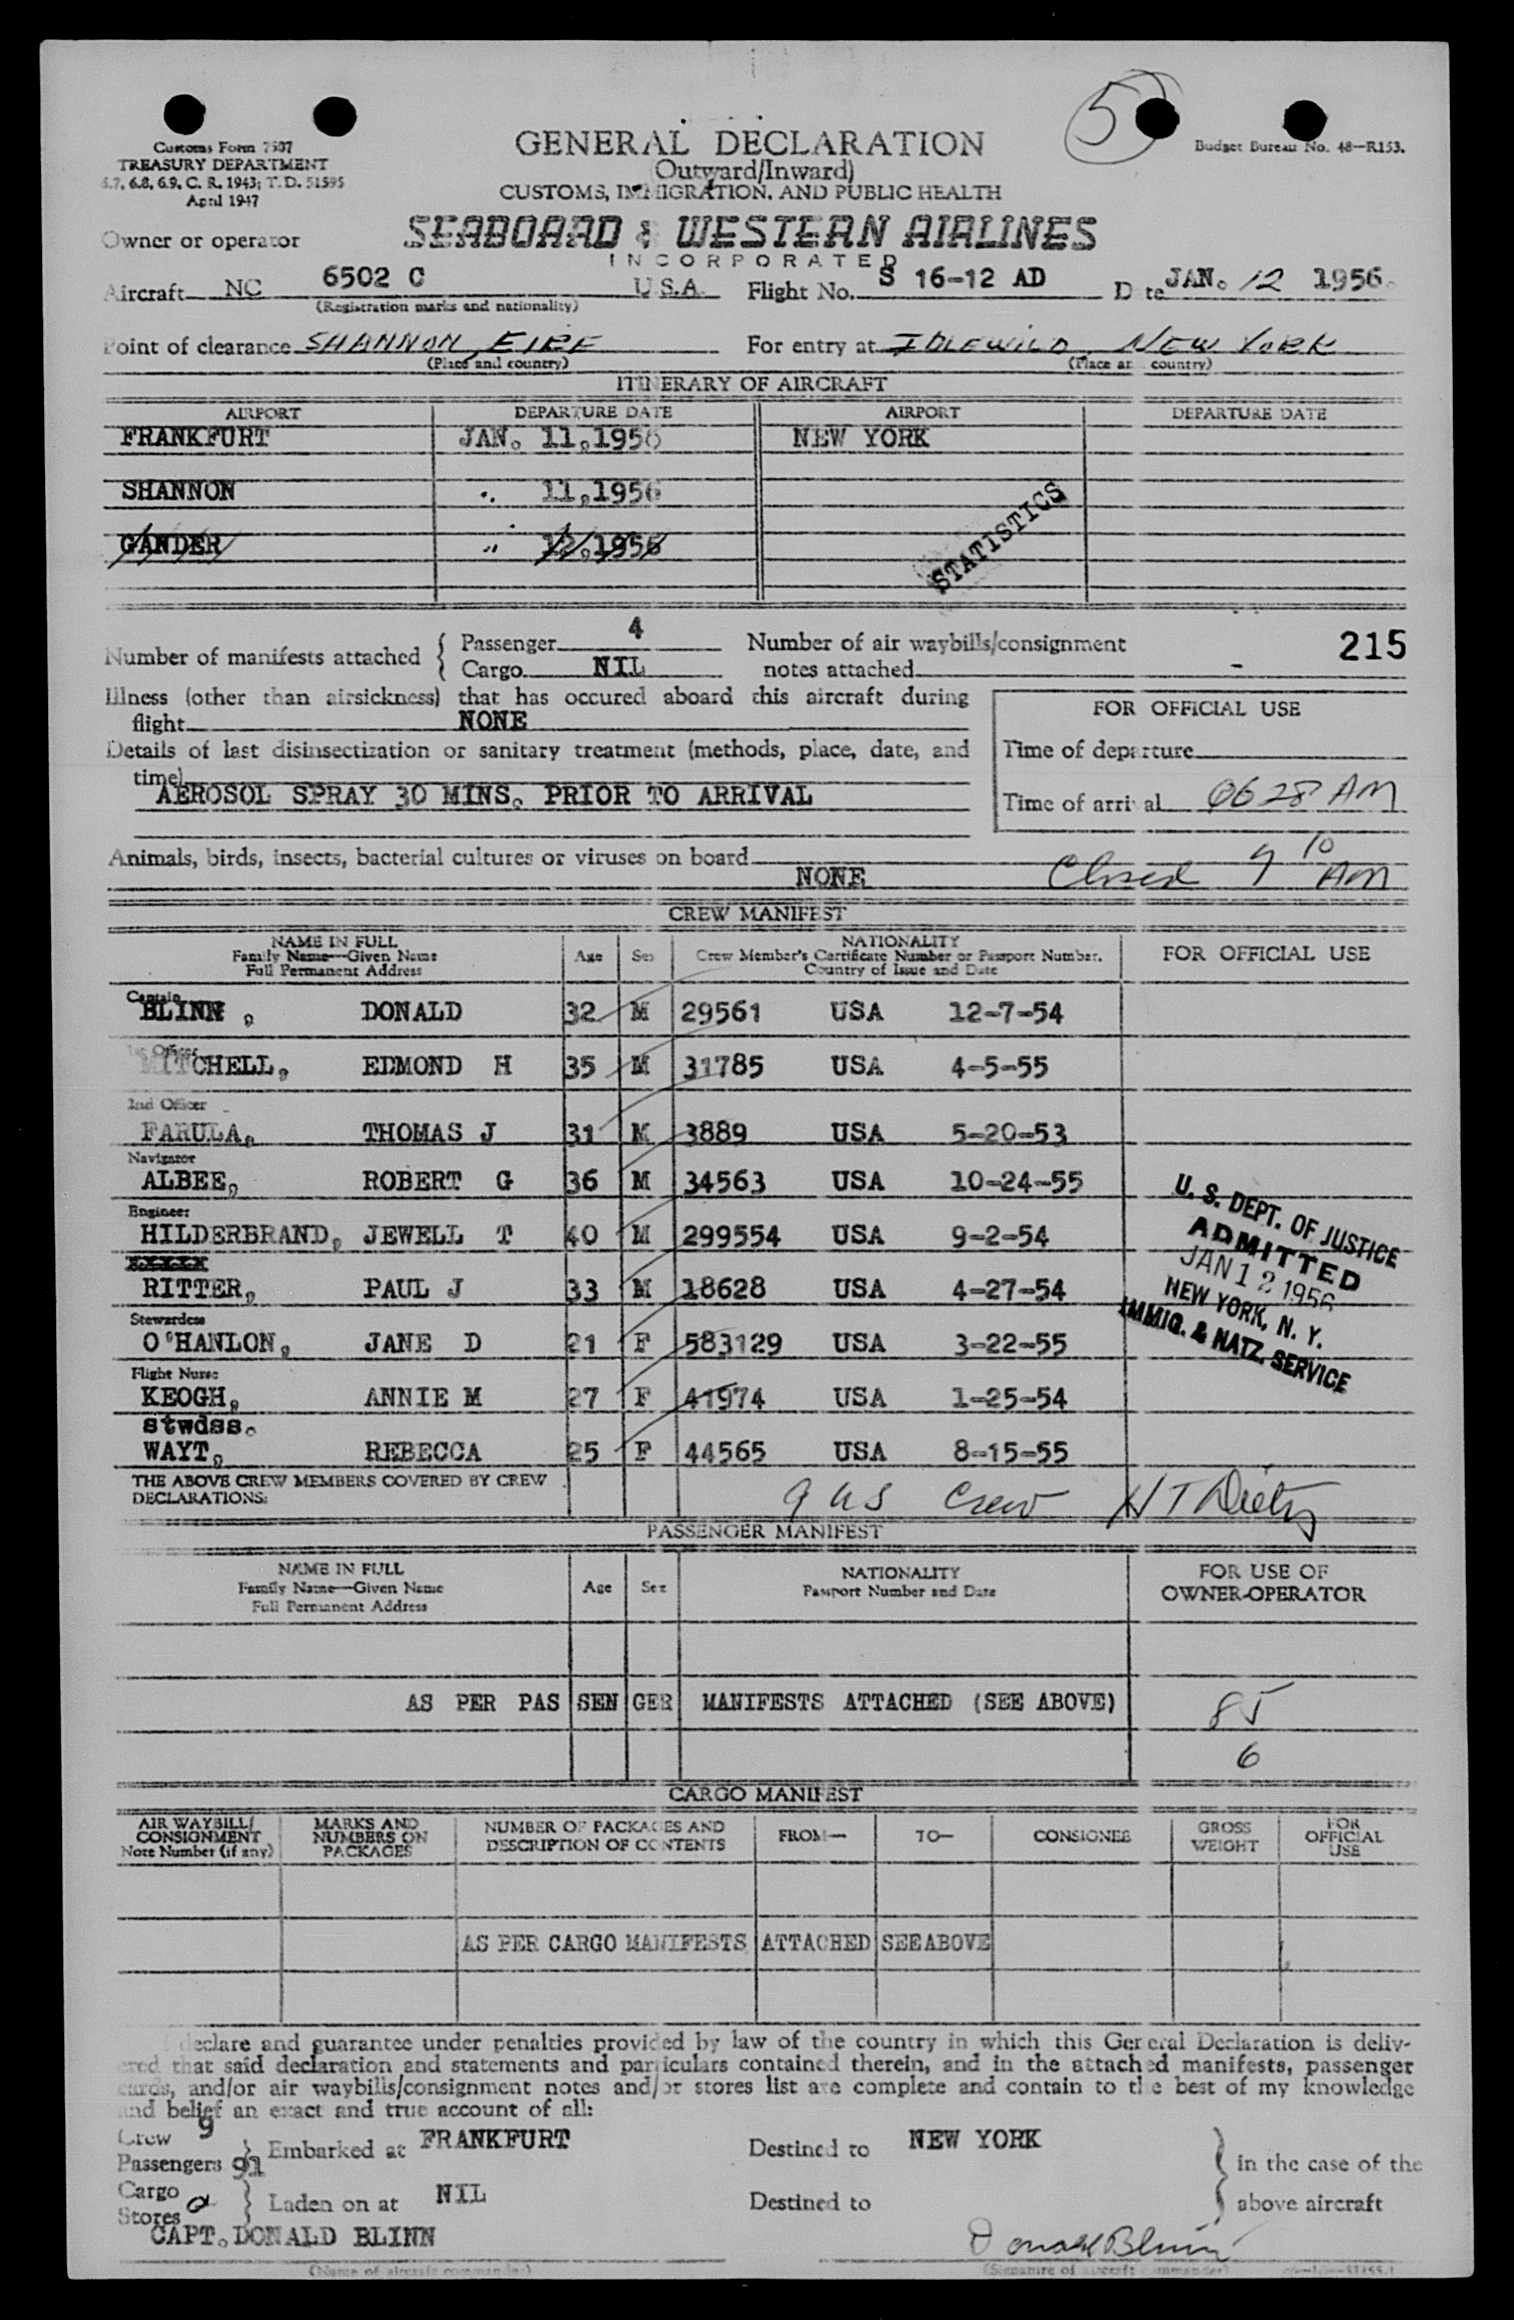 5
Customs Form 7507
TREASURY DEPARTMENT
6.7, 6.8, 6.9, C. R. 1943; T. D. 51595
April 1947
GENERAL DECLARATION
(Outward/Inward)
CUSTOMS, IMMIGRATION, AND PUBLIC HEALTH
Budget Bureau No. 48—R153.
Owner or operator SEABOARD & WESTERN AIRLINES
INCORPORATED
Aircraft NC 6502 C U.S.A. Flight No. S 16-12 AD Date JAN. 12 1956.
(Registration marks and nationality)
Point of clearance SHANNON, EIRE For entry at IDLEWILD, NEW YORK
(Place and country) (Place and country)
ITINERARY OF AIRCRAFT
AIRPORT DEPARTURE DATE AIRPORT DEPARTURE DATE
FRANKFURT JAN. 11,1956 NEW YORK
SHANNON " 11,1956
GANDER " 12,1956
STATISTICS
Number of manifests attached { Passenger 4 Number of air waybills/consignment 215
Cargo NIL notes attached -
Illness (other than airsickness) that has occured aboard this aircraft during
flight NONE
FOR OFFICIAL USE
Details of last disinsectization or sanitary treatment (methods, place, date, and
time)
AEROSOL SPRAY 30 MINS. PRIOR TO ARRIVAL
Time of departure
Time of arrival 0628 AM
Animals, birds, insects, bacterial cultures or viruses on board
NONE
Closed 9 10 AM
CREW MANIFEST
NAME IN FULL
Family Name—Given Name
Full Permanent Address
Age Sex
NATIONALITY
Crew Member's Certificate Number or Passport Number.
Country of Issue and Date
FOR OFFICIAL USE
Captain
BLINN , DONALD 32 M 29561 USA 12-7-54
1st Officer
MITCHELL, EDMOND H 35 M 31785 USA 4-5-55
2nd Officer
FARULA, THOMAS J 31 M 3889 USA 5-20-53
Navigator
ALBEE, ROBERT G 36 M 34563 USA 10-24-55
Engineer
HILDERBRAND, JEWELL T 40 M 299554 USA 9-2-54
XXXXX
RITTER, PAUL J 33 M 18628 USA 4-27-54
Stewardess
O'HANLON, JANE D 21 F 583129 USA 3-22-55
Flight Nurse
KEOGH, ANNIE M 27 F 41974 USA 1-25-54
stwdss.
WAYT, REBECCA 25 F 44565 USA 8-15-55
U. S. DEPT. OF JUSTICE
ADMITTED
JAN 12 1956
NEW YORK, N. Y.
IMMIG. & NATZ. SERVICE
THE ABOVE CREW MEMBERS COVERED BY CREW
DECLARATIONS:
9 US Crew H T Dietz
PASSENGER MANIFEST
NAME IN FULL
Family Name—Given Name
Full Permanent Address
Age Sex
NATIONALITY
Passport Number and Date
FOR USE OF
OWNER-OPERATOR
AS PER PASSENGER MANIFESTS ATTACHED (SEE ABOVE) 85
6
CARGO MANIFEST
AIR WAYBILL/
CONSIGNMENT
Note Number (if any)
MARKS AND
NUMBERS ON
PACKAGES
NUMBER OF PACKAGES AND
DESCRIPTION OF CONTENTS
FROM— TO— CONSIGNEE
GROSS
WEIGHT
FOR
OFFICIAL
USE
AS PER CARGO MANIFESTS ATTACHED SEE ABOVE
declare and guarantee under penalties provided by law of the country in which this General Declaration is deliv-
ered that said declaration and statements and particulars contained therein, and in the attached manifests, passenger
cards, and/or air waybills/consignment notes and/or stores list are complete and contain to the best of my knowledge
and belief an exact and true account of all:
Crew 9
Passengers 91 } Embarked at FRANKFURT Destined to NEW YORK } in the case of the
Cargo
Stores } Laden on at NIL Destined to above aircraft
CAPT. DONALD BLINN Donald Blinn
(Name of aircraft commander) (Signature of aircraft commander)